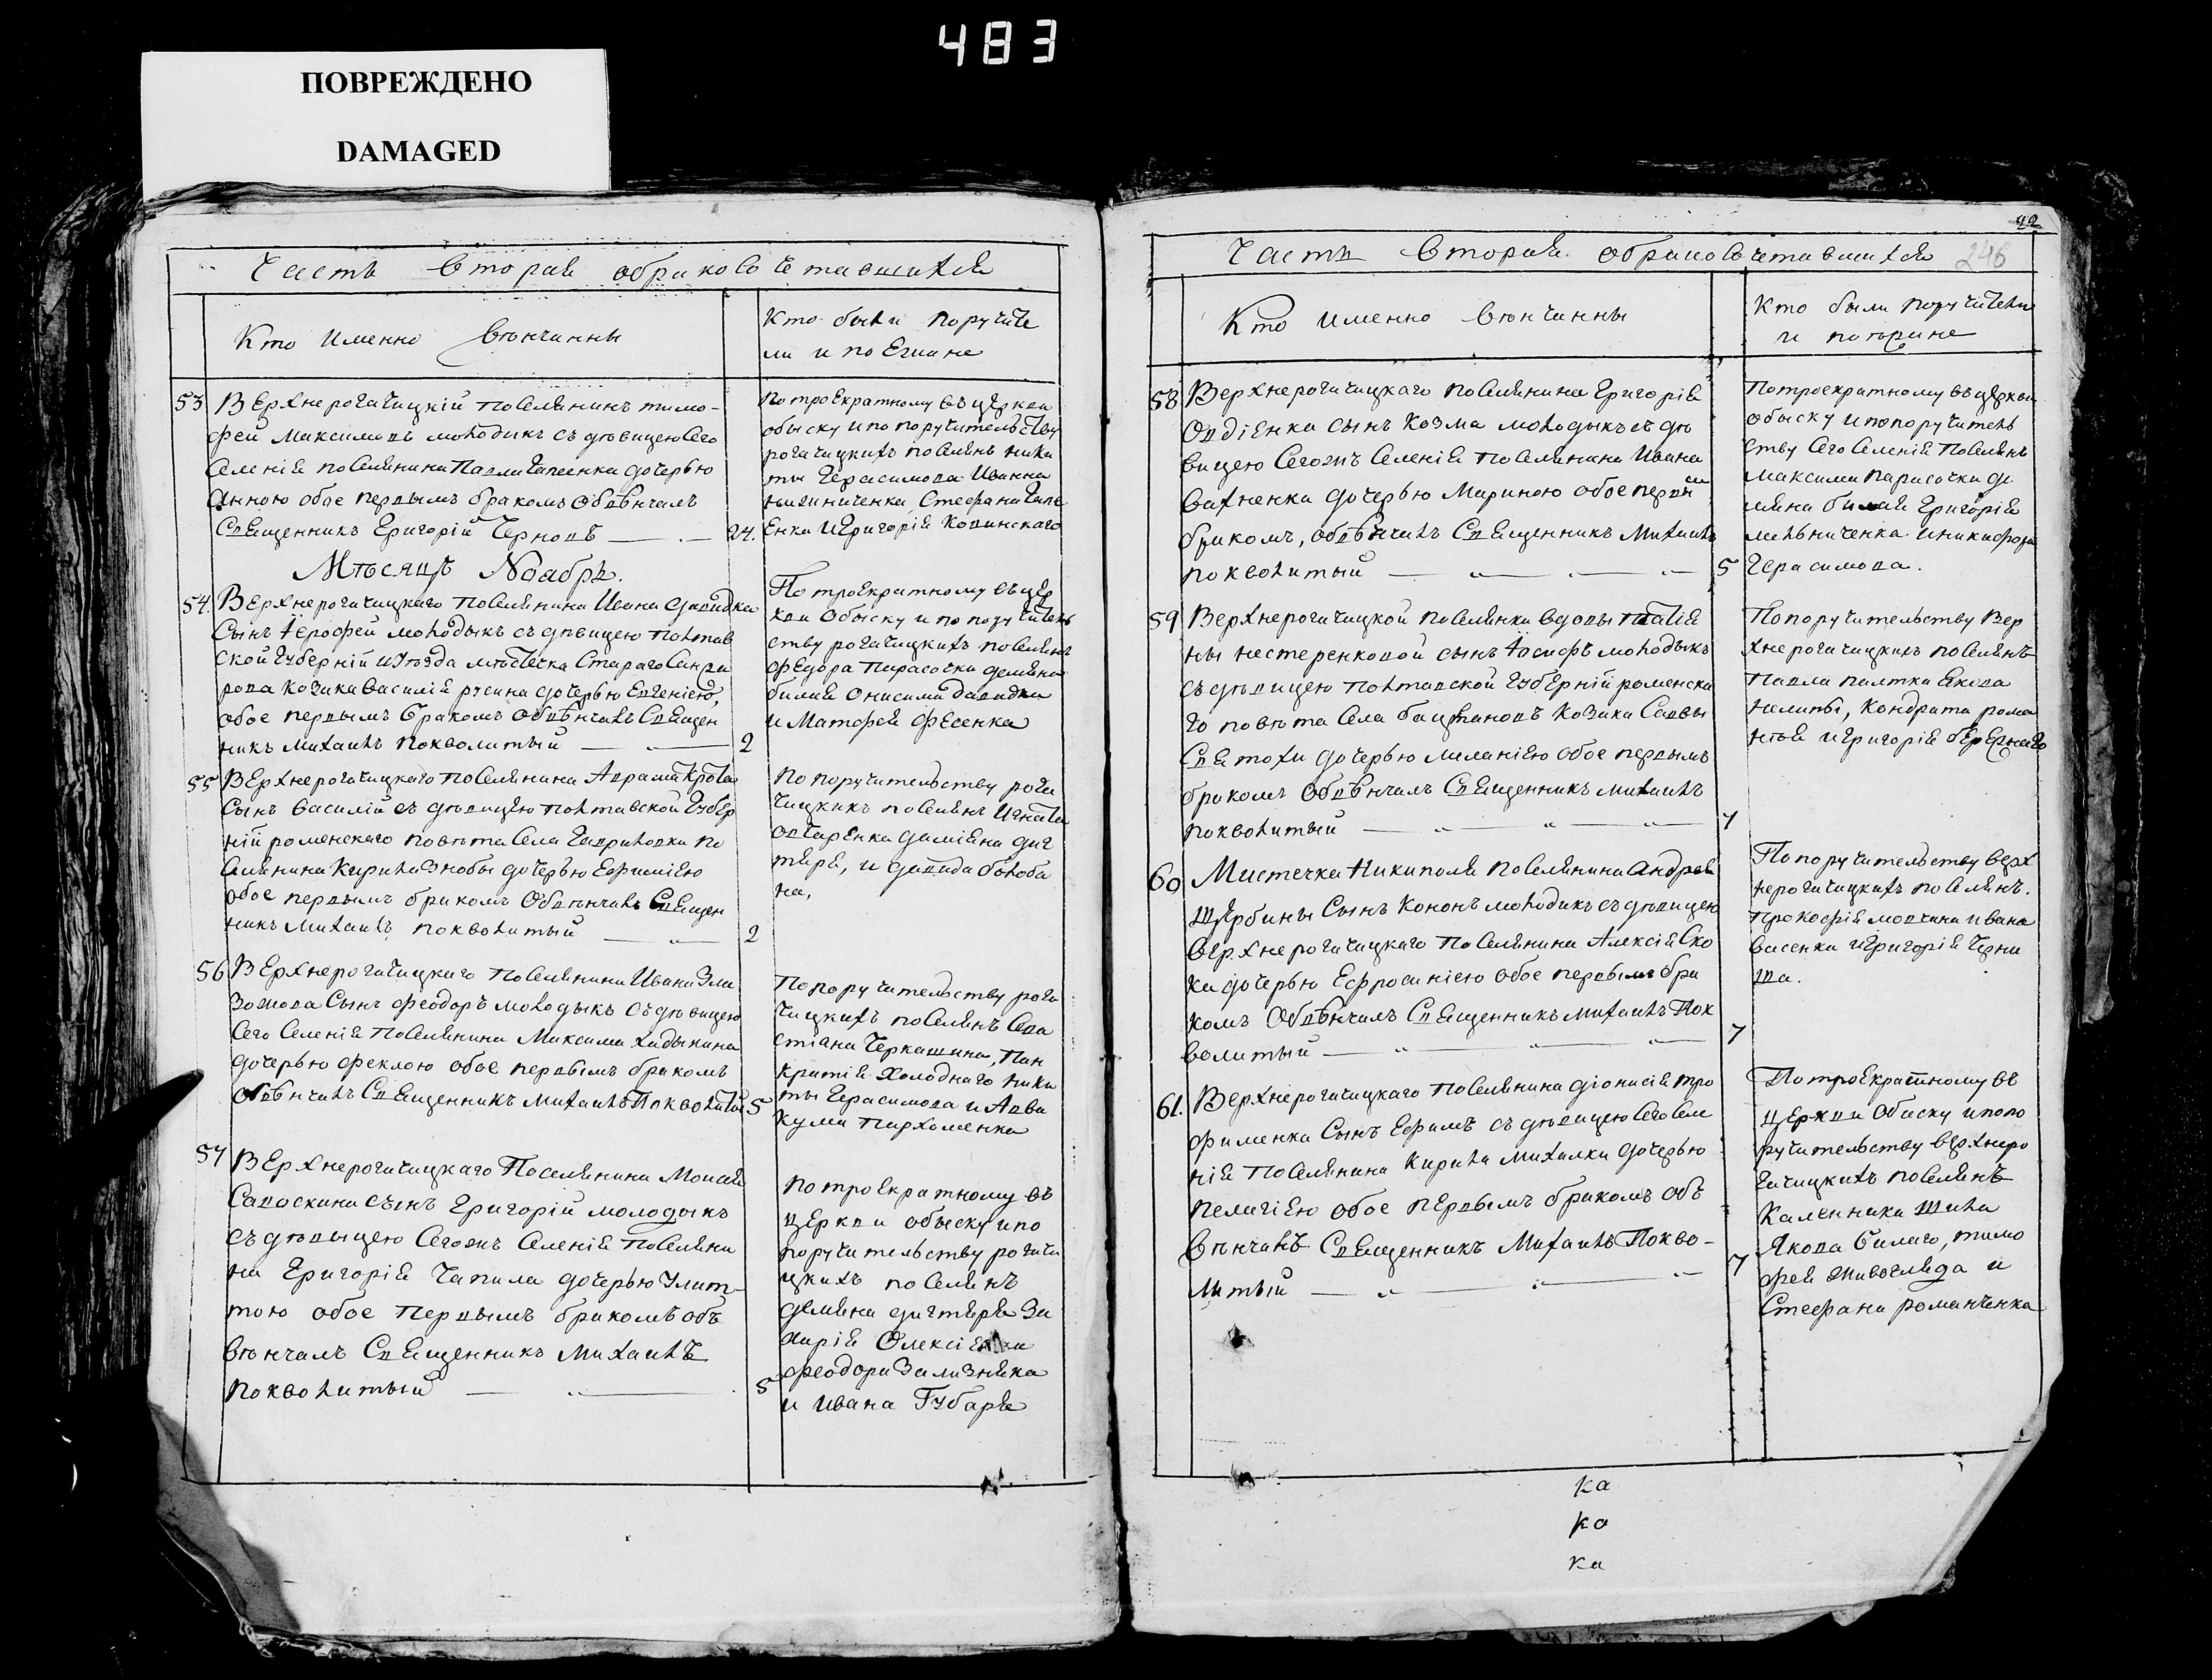 483
ПОВРЕЖДЕНО
DAMAGED
Часть вторая о бракосочетавшихся
Кто именно вѣнчанны
Кто были поручите
ли и поезжане
53 Верхнерогачицкій поселянинъ Тимо-
фей Максимовъ молодикъ съ дѣвицею сего
селенія поселянина Павла дочерью
Анною обое первымъ бракомъ обвѣнчалъ
Священникъ Григорій Черновъ 24.
По троекратному въ церкви
обыску и по поручительству
рогачицкихъ поселянъ Ники
ты Герасимова Иванна
Стефана
енка и Григорія Ковинскаго
Мѣсяцъ Ноябрь.
54. Верхнерогачицкаго поселянина Ивана Давидка
сынъ Іерофей молодыкъ съ дѣвицею Полтав
ской губерніи и уѣзда мѣстечка Стараго Санжа
рова козака Василія Русина дочерью Евгеніею,
обое первымъ бракомъ обвѣнчалъ Священ
никъ Михаилъ Покволитый 2
По троекратному въ цер
кви обыску и по поручитель
ству рогачицкихъ поселянъ
Федора Парасочки Демяна
Билая Онисима Давидка
и Матфея Фесенка
55 Верхнерогачицкаго поселянина Аврама Кротая
сынъ Василій съ дѣвицею Полтавской губер
ніи роменскаго повѣта села Гавриловки по
селянина Кирила Знобы дочерью Евфиміею
обое первымъ бракомъ обвѣнчалъ Священ
никъ Михаилъ Покволитый 2
По поручительству рога
чицкихъ поселянъ Игната
Овчаренка Даміяна Дег
тяря, и Давида Болоба
на,
56 Верхнерогачицкаго поселянина Ивана
сынъ Феодоръ молодыкъ съ дѣвицею
сего селенія поселянина Максима Хадыкина
дочерью Феклою обое первымъ бракомъ
обвѣнчалъ Священникъ Михаилъ Покволитый 5
По поручительству рога
чицкихъ поселянъ Сева
стіана Черкашина, Пан
кратія Холоднаго Ники
ты Герасимова и Авва
кума Пархоменка
57 Верхнерогачицкаго Поселянина Моисея
Савоскина сынъ Григорій молодыкъ
съ дѣвыцею сегожъ селенія поселяни
на Григорія Чапила дочерью Улит-
тою обое первымъ бракомъ обѣ
вѣнчалъ Священникъ Михаилъ
Покволитый 5
По троекратному въ
церкви обыску и по
поручительству рогачи
цкихъ поселянъ
Демяна дигтяря За
харія Олексіенка
Феодора Зализняка
и Ивана Губаря
92
246
Часть вторая о браковочетавшихся
Кто именно вѣнчанны
Кто были поручители
и поезжане
58 Верхнерогачицкаго поселянина Григорія
Овдіенка сынъ Козма молодыкъ съ дѣ
вицею сегожъ селенія поселянина Ивана
Вахненка дочерью Мариною обое первы
бракомъ, обвѣнчалъ Священникъ Михаилъ
Покволитый 5
По троекратному въ церкви
обыску и по поручитель
ству сего селенія поселянъ
Максима Парасочки Де
мяна Билая Григорія
Мельниченка и Никифора
Герасимова.
59 Верхнерогачицкой поселянки вдовы Татія
ны Нестеренковой сынъ Іосифъ молодыкъ
съ дѣвицею Полтавской губерніи роменска
го повѣта села козака Саввы
дочерью Меланіею обое первымъ
бракомъ обвѣнчалъ Священникъ Михаилъ
Покволитый 7
По поручительству вер
хнерогачицкихъ поселянъ
Павла Палтка Якова
Нелипы, Кондрата Рома
и Григорія
60 Мистечка Никиполя поселянина Андрея
Щербины сынъ Кононъ молодикъ съ дѣвицею
верхнерогачицкаго поселянина Алексія Ско
ки дочерью Евфросиніею обое первымъ бра
комъ обвѣнчалъ Священникъ Михаилъ Пок
волитый 7
По поручительству верх
нерогачицкихъ поселянъ.
Прокофія Мовчана Ивана
Васенка и Григорія Черни
ша.
61. Верхнерогачицкаго поселянина Діонисія Тро
фименка сынъ Ефимъ съ дѣвицею сего селе
нія поселянина Кирила Михалки дочерью
Пелагіею обое первымъ бракомъ объ
вѣнчалъ Священникъ Михаилъ Покво-
литый 7
По троекратному въ
церкви обиску и по по
ручительству верхнеро
гачицкихъ поселянъ
Каленника Шила
Якова Билаго, Тимо
фея Живогляда и
Стефана Романченка
ка
ка
ка